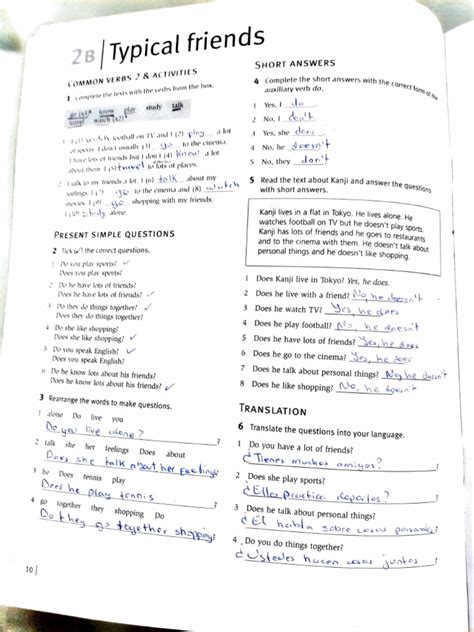 2B Typical friends
COMMON VERBS 2 & ACTIVITIES
1 Complete the texts with the verbs from the box.
go (x3) know play study talk
travel watch (x2)
1 I (1) watch football on TV and I (2) play a lot
of sports. I don't usually (3) go to the cinema.
I have lots of friends but I don't (4) know a lot
about them. I (5) travel to lots of places.
2 I talk to my friends a lot. I (6) talk about my
feelings. I (7) go to the cinema and (8) watch
movies. I (9) go shopping with my friends.
I (10) study alone.
PRESENT SIMPLE QUESTIONS
2 Tick (✓) the correct questions.
1 Do you play sports? ✓
Does you play sports?
2 Do he have lots of friends?
Does he have lots of friends? ✓
3 Do they do things together? ✓
Does they do things together?
4 Do she like shopping?
Does she like shopping? ✓
5 Do you speak English? ✓
Does you speak English?
6 Do he know lots about his friends?
Does he know lots about his friends? ✓
3 Rearrange the words to make questions.
1 alone Do live you
Do you live alone?
2 talk she her feelings Does about
Does she talk about her feelings
3 he Does tennis play
Does he play tennis
4 go together they shopping Do
Do they go together shopping?
10
SHORT ANSWERS
4 Complete the short answers with the correct form of the
auxiliary verb do.
1 Yes, I do
2 No, I don't
3 Yes, she does
4 No, he doesn't
5 No, they don't
5 Read the text about Kanji and answer the questions
with short answers.
Kanji lives in a flat in Tokyo. He lives alone. He
watches football on TV but he doesn't play sports.
Kanji has lots of friends and he goes to restaurants
and to the cinema with them. He doesn't talk about
personal things and he doesn't like shopping.
1 Does Kanji live in Tokyo? Yes, he does.
2 Does he live with a friend? No, he doesn't
3 Does he watch TV? Yes, he does
4 Does he play football? No, he doesn't
5 Does he have lots of friends? Yes, he does
6 Does he go to the cinema? Yes, he does
7 Does he talk about personal things? No he doesn't
8 Does he like shopping? No, he doesn't
TRANSLATION
6 Translate the questions into your language.
1 Do you have a lot of friends?
¿Tienes muchos amigos?
2 Does she play sports?
¿Ella practica deportes?
3 Does he talk about personal things?
¿El habla sobre cosas personales?
4 Do you do things together?
¿Ustedes hacen cosas juntos?